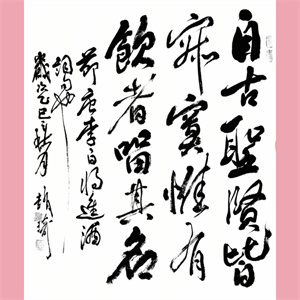 自古聖賢皆
寂寞惟有
飲者留其名
節唐李白將進酒
歲己秋月